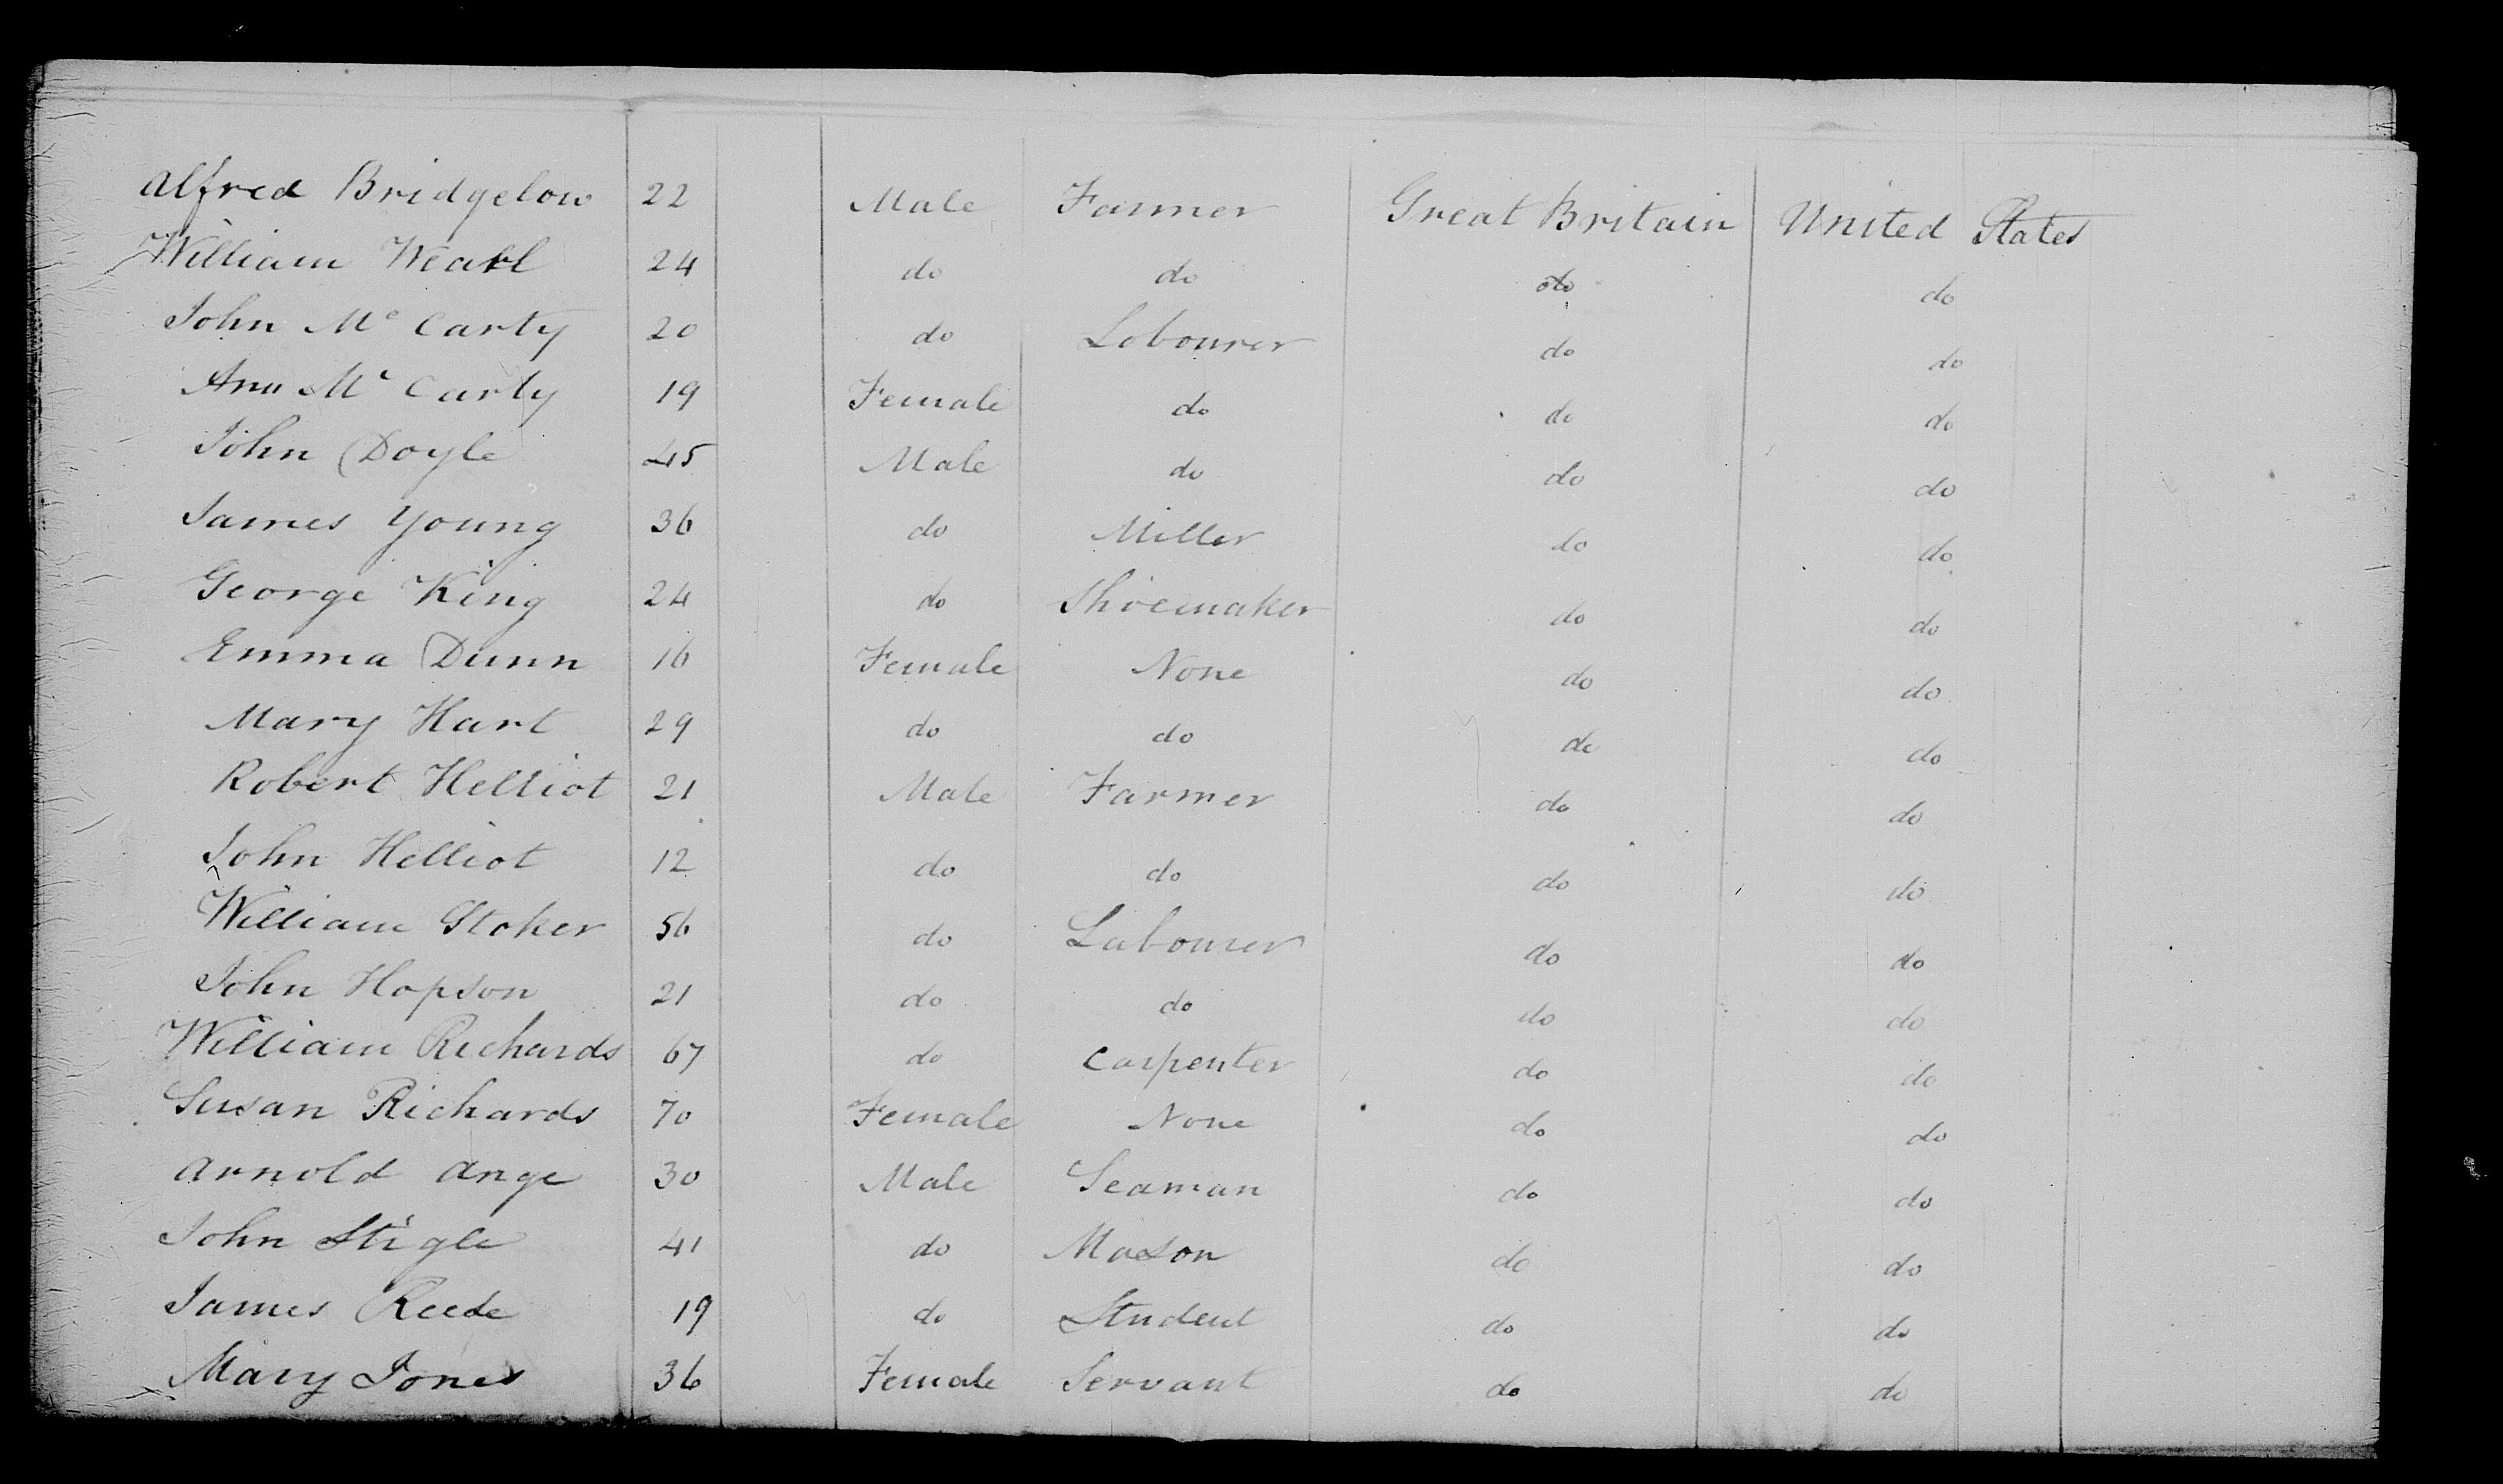 Alfred Bridgelow 22 Male Farmer Great Britain United States
William Wearl 24 do do do do
John Mc Carty 20 do Lobourer do do
Ann Mc Carty 19 Female do do do
John Doyle 45 Male do do do
James Young 36 do Miller do do
George King 24 do Shoemaker do do
Emma Dunn 16 Female None do do
Mary Hart 29 do do do do
Robert Helliot 21 Male Farmer do do
John Helliot 12 do do do do
William Stoker 56 do Labourer do do
John Hopson 21 do do do do
William Richards 67 do Carpenter do do
Susan Richards 70 Female None do do
Arnold Ange 30 Male Seaman do do
John Stigle 41 do Mason do do
James Reede 19 do Student do do
Mary Jones 36 Female Servant do do